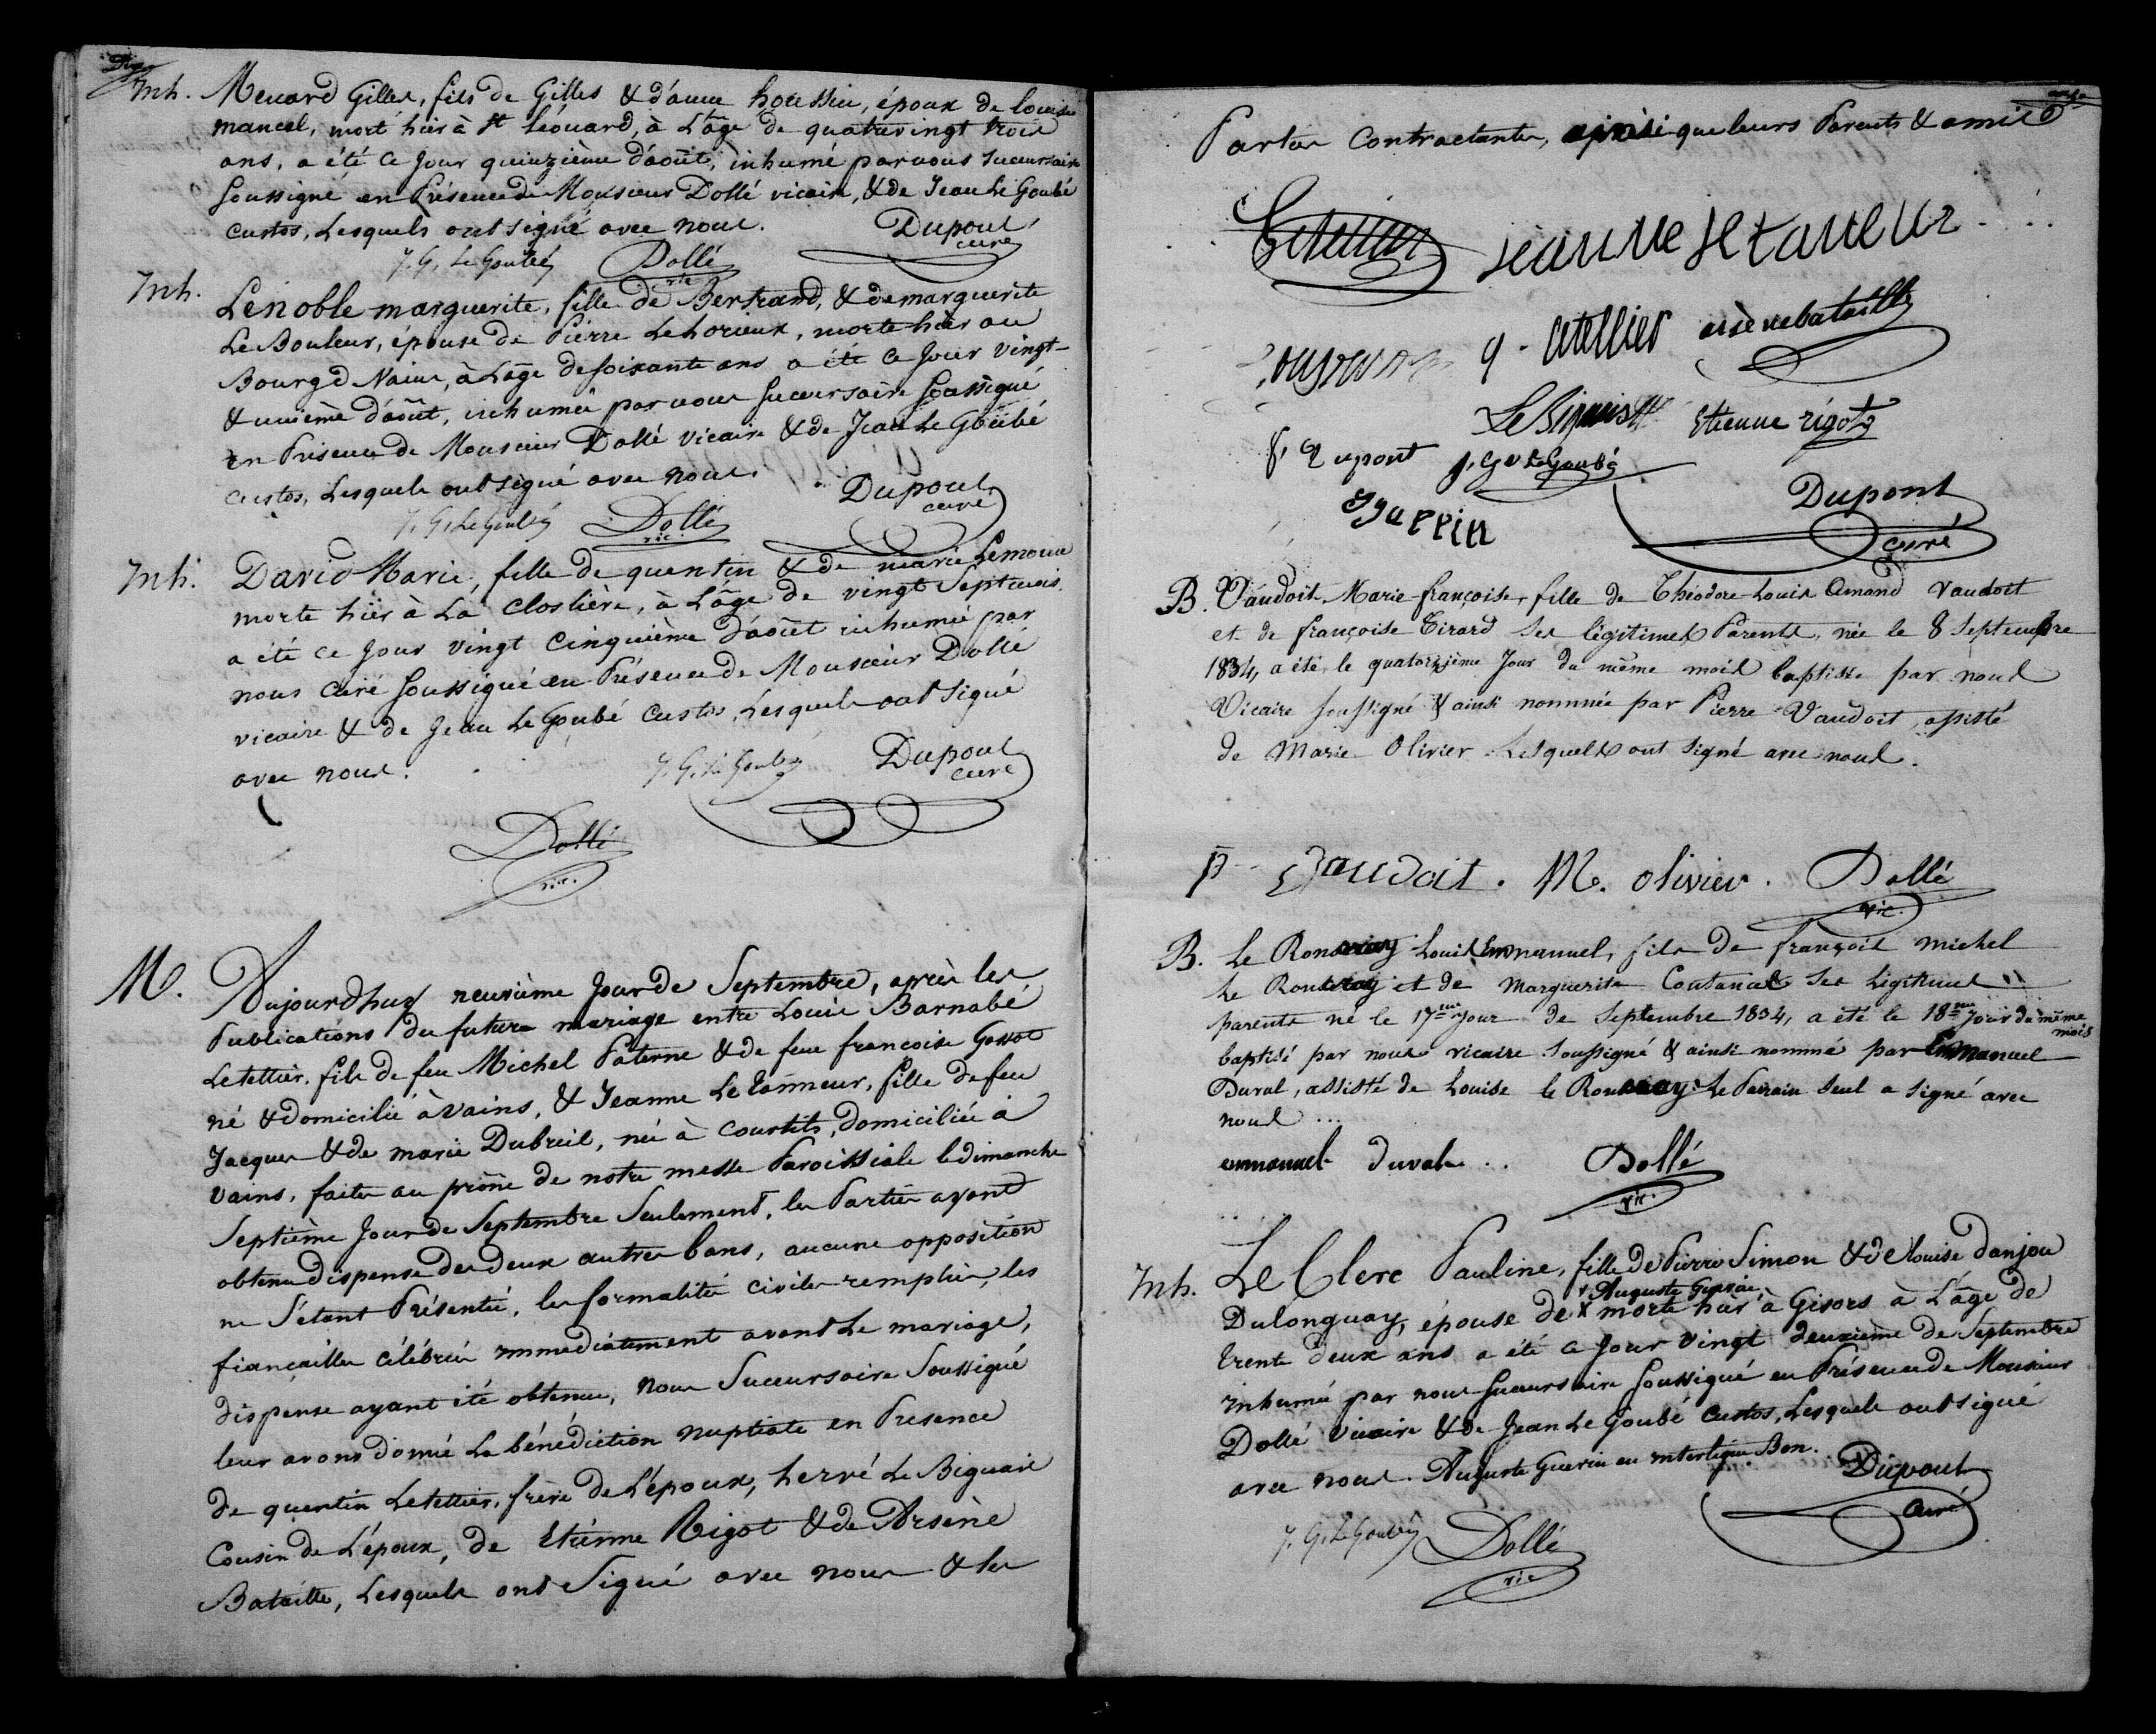 Dix
Inh. Menard Gilles, fils de Gilles & d'anne houssin, époux de louise
mancel, mort hier à St Léonard, à L'âge de quatrevingt trois
ans, a été ce jour quinzième d'août, inhumé par nous succursaire
soussigné en Présence de Monsieur Dollé vicaire, & de Jean Le Goubé
custos, Lesquels ont signé avec nous.
J. G. Le Goubé Dollé vic Dupont curé
Inh. Lenoble marguerite, fille de Bertrand, & de marguerite
Le Bouleur, épouse de Pierre Lehorieux, morte hier au
Bourg d Vains, à L'âge de soixante ans a été ce jour vingt-
& unième d'août, inhumée par nous succursaire soussigné
en Présence de Monsieur Dollé vicaire & de Jean Le Goubé
custos, Lesquels ont signé avec nous.
J. G. Le Goubé Dollé vic. Dupont curé
Inh. David Marie, fille de quentin & de marie Lemoine
morte hier à La Closlière, à L'âge de vingt Sept mois
a été ce jour vingt cinquième d'août inhumée par
nous curé soussigné en Présence de Monsieur Dollé
vicaire & de Jean Le Goubé Custos, Lesquels ont signé
avec nous.
J. G. Le Goubé Dupont curé
Dollé vic.
M. Aujourdhuy neuvième jour de Septembre, après les
Publications du futur mariage entre Louis Barnabé
Letellier, fils de feu Michel Paterne & de feue francoise Gossot
né & domicilié à Vains, & Jeanne Le tanneur, fille de feu
Jacques & de marie Dubreil, née à Courtils, domiciliée à
Vains, faites au prône de notre messe Paroissiale le dimanche
Septième jour de Septembre Seulement, les Parties ayant
obtenu dispense des deux autres bans, aucune opposition
ne S'étant Présentée, les formalités civiles remplies, les
fiançailles célébrées immédiatement avant Le mariage,
dispense ayant été obtenue, nous Succursaire Soussigné
leur avons donné La bénédiction nuptiale en Presence
de quentin Letellier, frère de L'époux, hervé Le Biguais
Cousin de L'époux, de Etienne Rigot & de Arsène
Bataille, Lesquels ont Signé avec nous & les
onze
Parties Contractantes, ainsi que leurs Parents & amis
Letellier jeanne le taneur
q. letellier arsene bataille
Le Biguais etienne rigot
f. Dupont j. ge le Goubé
Dupont curé
B. Vaudoit Marie-françoise, fille de Théodore-Louis Amand Vaudoit
et de françoise Tirard ses légitimes Parents, née le 8 Septembre
1834, a été le quatorzième jour du même mois baptisée par nous
Vicaire soussigné & ainsi nommée par Pierre Vaudoit, assisté
de Marie Olivier Lesquels ont signé avec nous.
P Vaudoit. M. olivier. Dollé vic.
B. Le Ronceray Louis Emmanuel, fils de françois michel
Le Ronceray et de Marguerite Coutances ses légitimes
parents né le 17me jour de Septembre 1834, a été le 18me jour du même mois
baptisé par nous vicaire soussigné & ainsi nommé par Emmanuel
Duval, assisté de Louise le Ronceray. Le Parrain seul a signé avec
nous ...
emmanuel duval .. Dollé vic.
Inh. Le Clerc Pauline, fille de Pierre Simon & de louise danjou
Dulonguay, épouse de x Auguste Guerin, morte hier à Gisors à L'âge de
trente deux ans a été ce jour vingt deuxième de Septembre
inhumée par nous Succursaire soussigné en Présence de Monsieur
Dollé vicaire & de Jean Le Goubé custos, Lesquels ont signé
avec nous. Auguste Guerin en interligne Bon.
Dupont curé
J. G. Le Goubé Dollé vic